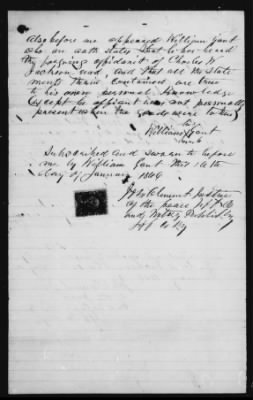 Also before me appeared William Gant
who on oath states that he has heard
the forgoing affidavit of Charles W
Jackson read, and that all the state
ments therin contained are true
to his own personal Knowledge
Except he affiant was not personally
present when the goods were
his
William Gant
mark
Subscribed and sworn to before
me by William Gant this 16th
day of January 1866
Clement Justice
of the peace
and Notary Public